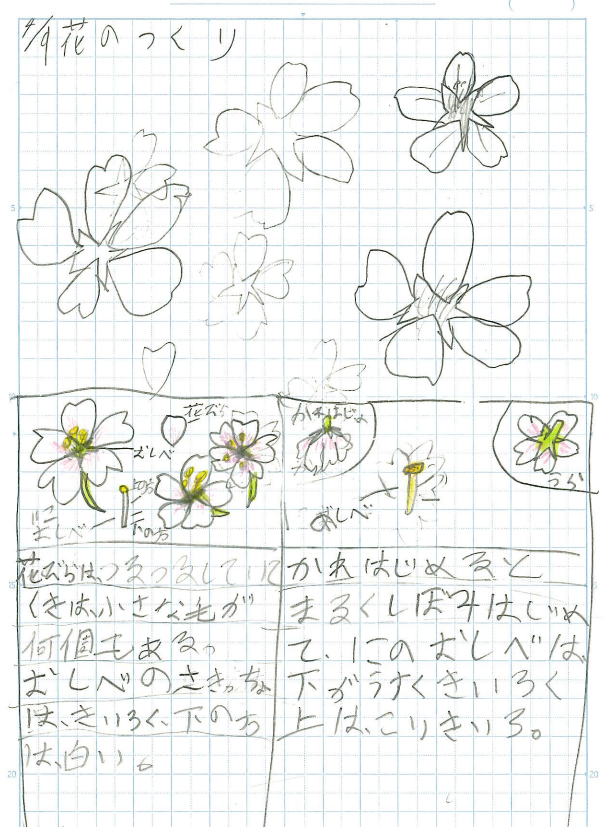 4/9 花のつくり
花びら
むしべ
上の方
下の方
むしべ
かれはじめ
おしべ
うら
花びらは、つるつるしていて
くきは、小さな毛が
何個もある。
むしべのさきっちょ
は、きいろく、下の方
は、白い。
かれはじめると
まるくしぼみはじめ
て、にのむしべは、
下がうすくきいろく
上は、こいきいろ。
5
10
15
20
5
10
15
20